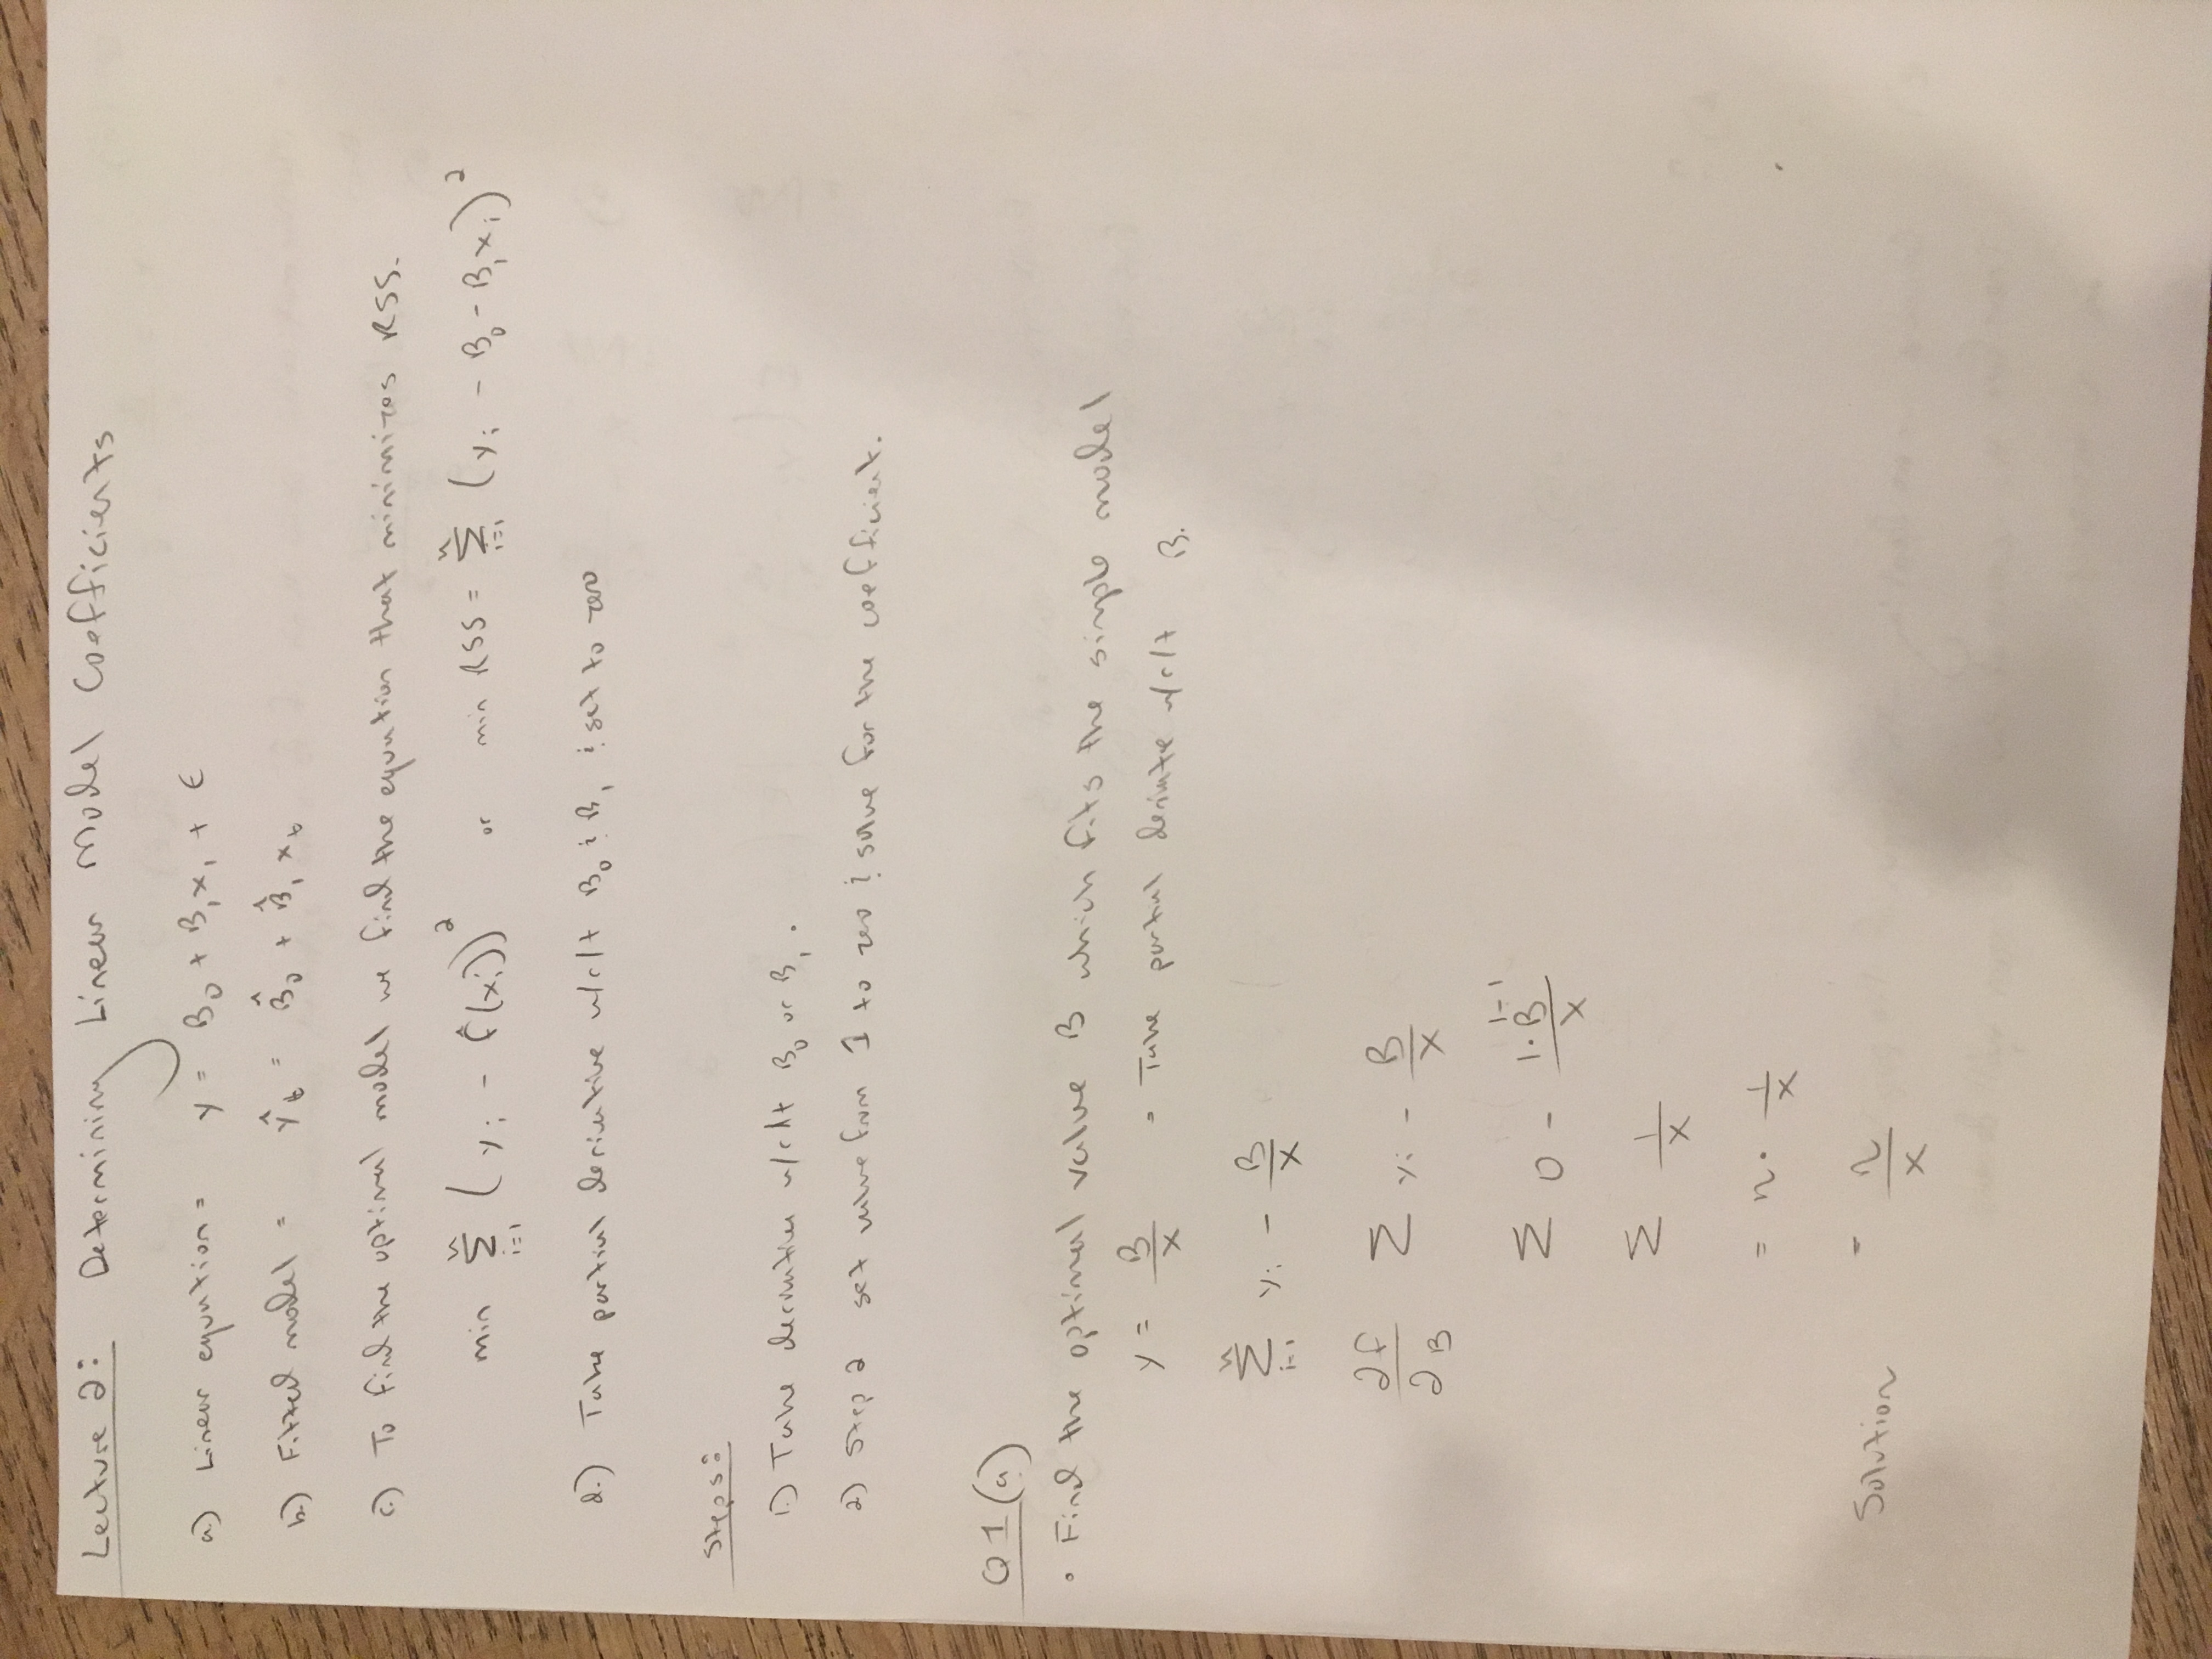 Lecture 2: Determining Linear Model Coefficients
a.) Linear equation = y = B₀ + B₁x₁ + ε
b.) Fitted model = ŷₜ = B̂₀ + B̂₁ xₜ
c.) To find the optimal model we find the equation that minimizes RSS.
min Σᵢ₌₁ⁿ (yᵢ - f̂(xᵢ))² or min RSS = Σᵢ₌₁ⁿ (yᵢ - B₀ - B₁xᵢ)²
d.) Take partial derivative w/r/t B₀ & B₁ & set to zero
Steps:
1.) Take derivative w/r/t B₀ or B₁.
2.) Step 2 set value from 1 to zero & solve for the coefficient.
Q1(a)
• Find the optimal value B which fits the simple model
y = B/x • Take partial derivate w/r/t B.
Σᵢ₌₁ⁿ yᵢ - B/x
∂f/∂B Σ yᵢ - B/x
Σ 0 - 1·B¹⁻¹/x
Σ 1/x
= n · 1/x
Solution = n/x